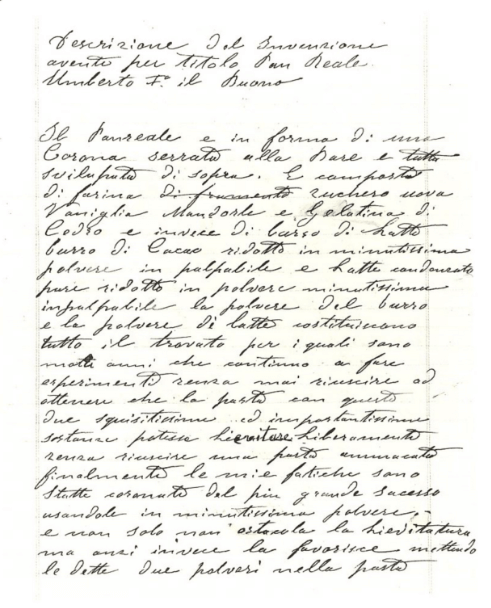 Descrizione del Invenzione
avente per titolo Pan Reale
Umberto I°. il Buono
Il Panreale e in forma di una
Corona serrata alla Base e tutta
svilupata di sopra. E composta
di farina di frumento zuchero uova
Vaniglia Mandorle e Gelatina di
Cedro e invece di burro di Latte
burro di Cacao ridotto in minutissima
polvere in palpabile e Latte condensato
pure ridotto in polvere minutissima
inpalpabile la polvere del burro
e la polvere di latte costituiscono
tutto il trovato per i quali sono
molti anni che continuo a fare
esperimenti senza mai riuscire ad
ottenere che la pasta con queste
due squisitissime ed importantissime
sostanze potesse lievitare liberamente
senza riuscire una pasta ammacata
finalmente le mie fatiche sono
state coronate del più grande sucesso
usandole in minutissima polvere. -
e non solo non ostacola la lievitatura
ma anzi invece la favorisce mettendo
le dette due polveri nella pasta